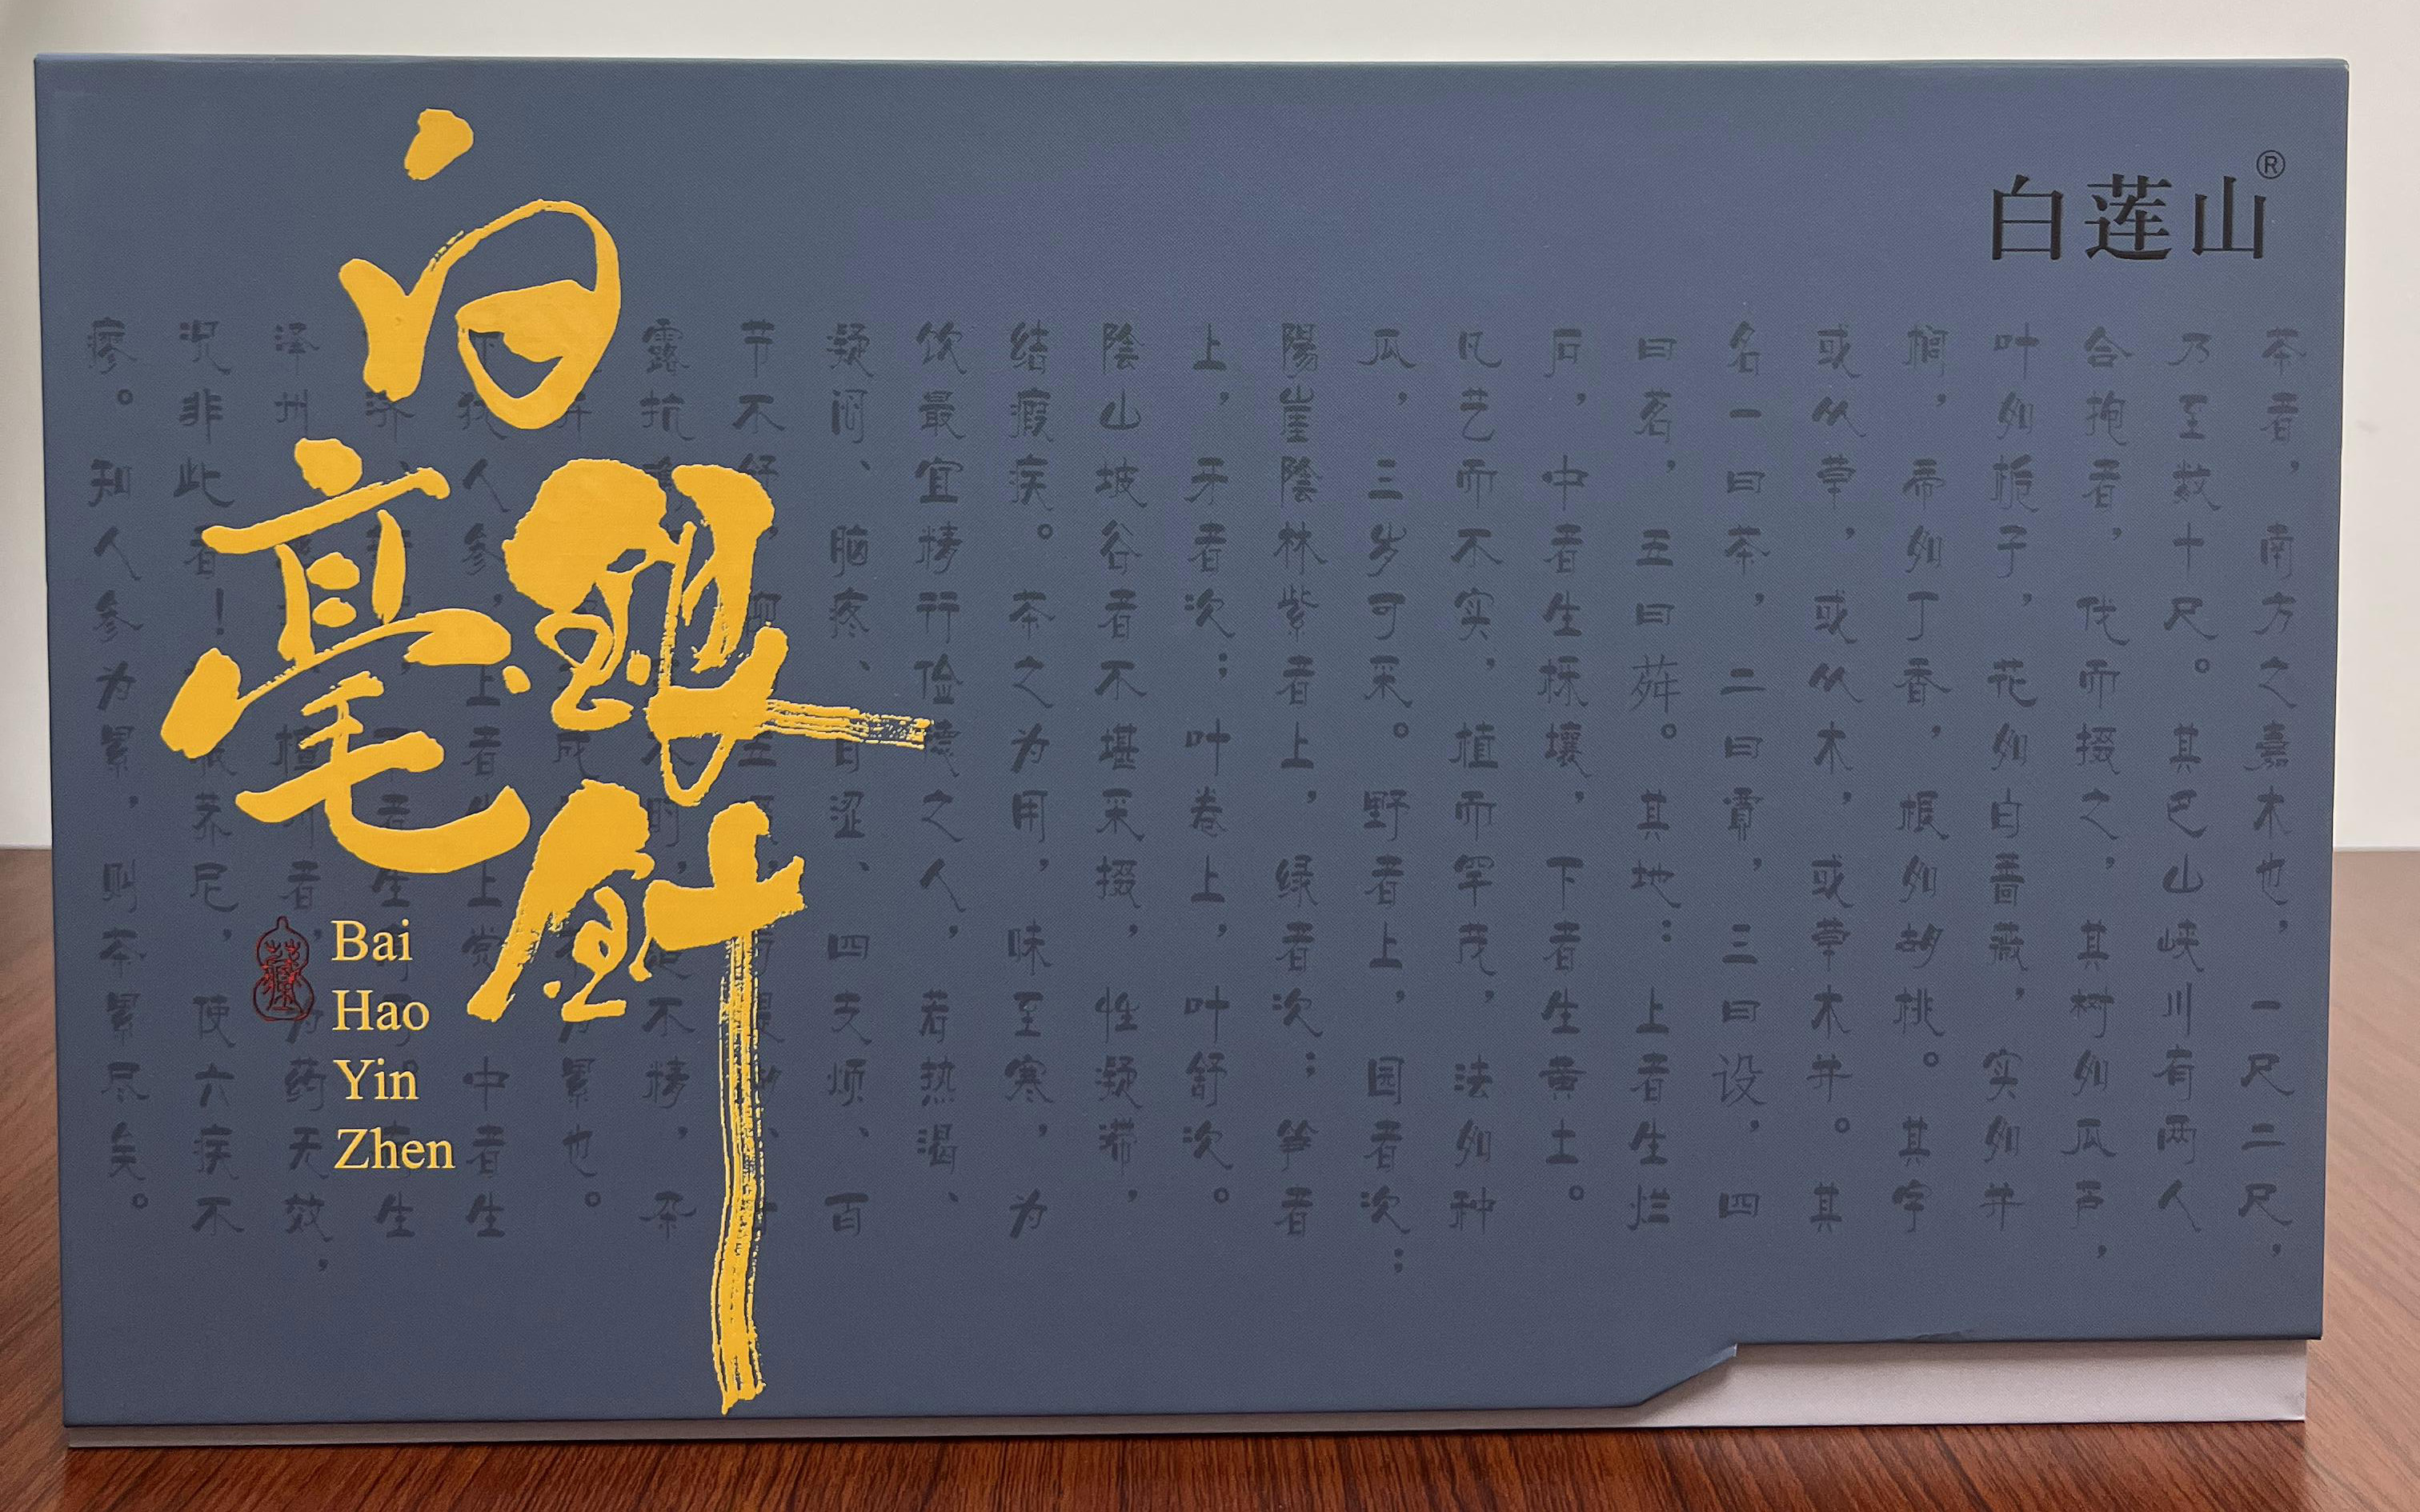 白莲山®
白毫
銀針
Bai
Hao
Yin
Zhen
藏
茶者，南方之嘉木也，一尺二尺，
乃至数十尺。其巴山峡川有两人
合抱者，伐而掇之，其树如瓜芦，
叶如栀子，花如白蔷薇，实如并
榈，蒂如丁香，根如胡桃。其字
或从草，或从木，或草木并。其
名一曰茶，二曰，三曰设，四
曰茗，五曰荈。其地：上者生烂
石，中者生栎壤，下者生黄土。
凡艺而不实，植而罕茂，法如种
瓜，三岁可采。野者上，园者次；
陽崖陰林紫者上，绿者次；笋者
上，牙者次；叶卷上，叶舒次。
陰山坡谷者不堪采掇，性凝滞，
结瘕疾。茶之为用，味至寒，为
饮最宜精行俭德之人，若热渴、
凝闷、脑疼、目涩、四支烦、百
节不舒，聊
露抗时，造不精，杂
成为累也。
人参，上者生上党，中者生
济、者生生
泽州、檀州者，为药无效，
况非此者！服荠尼，使六疾不
瘳。知人参为累，则茶累尽矣。